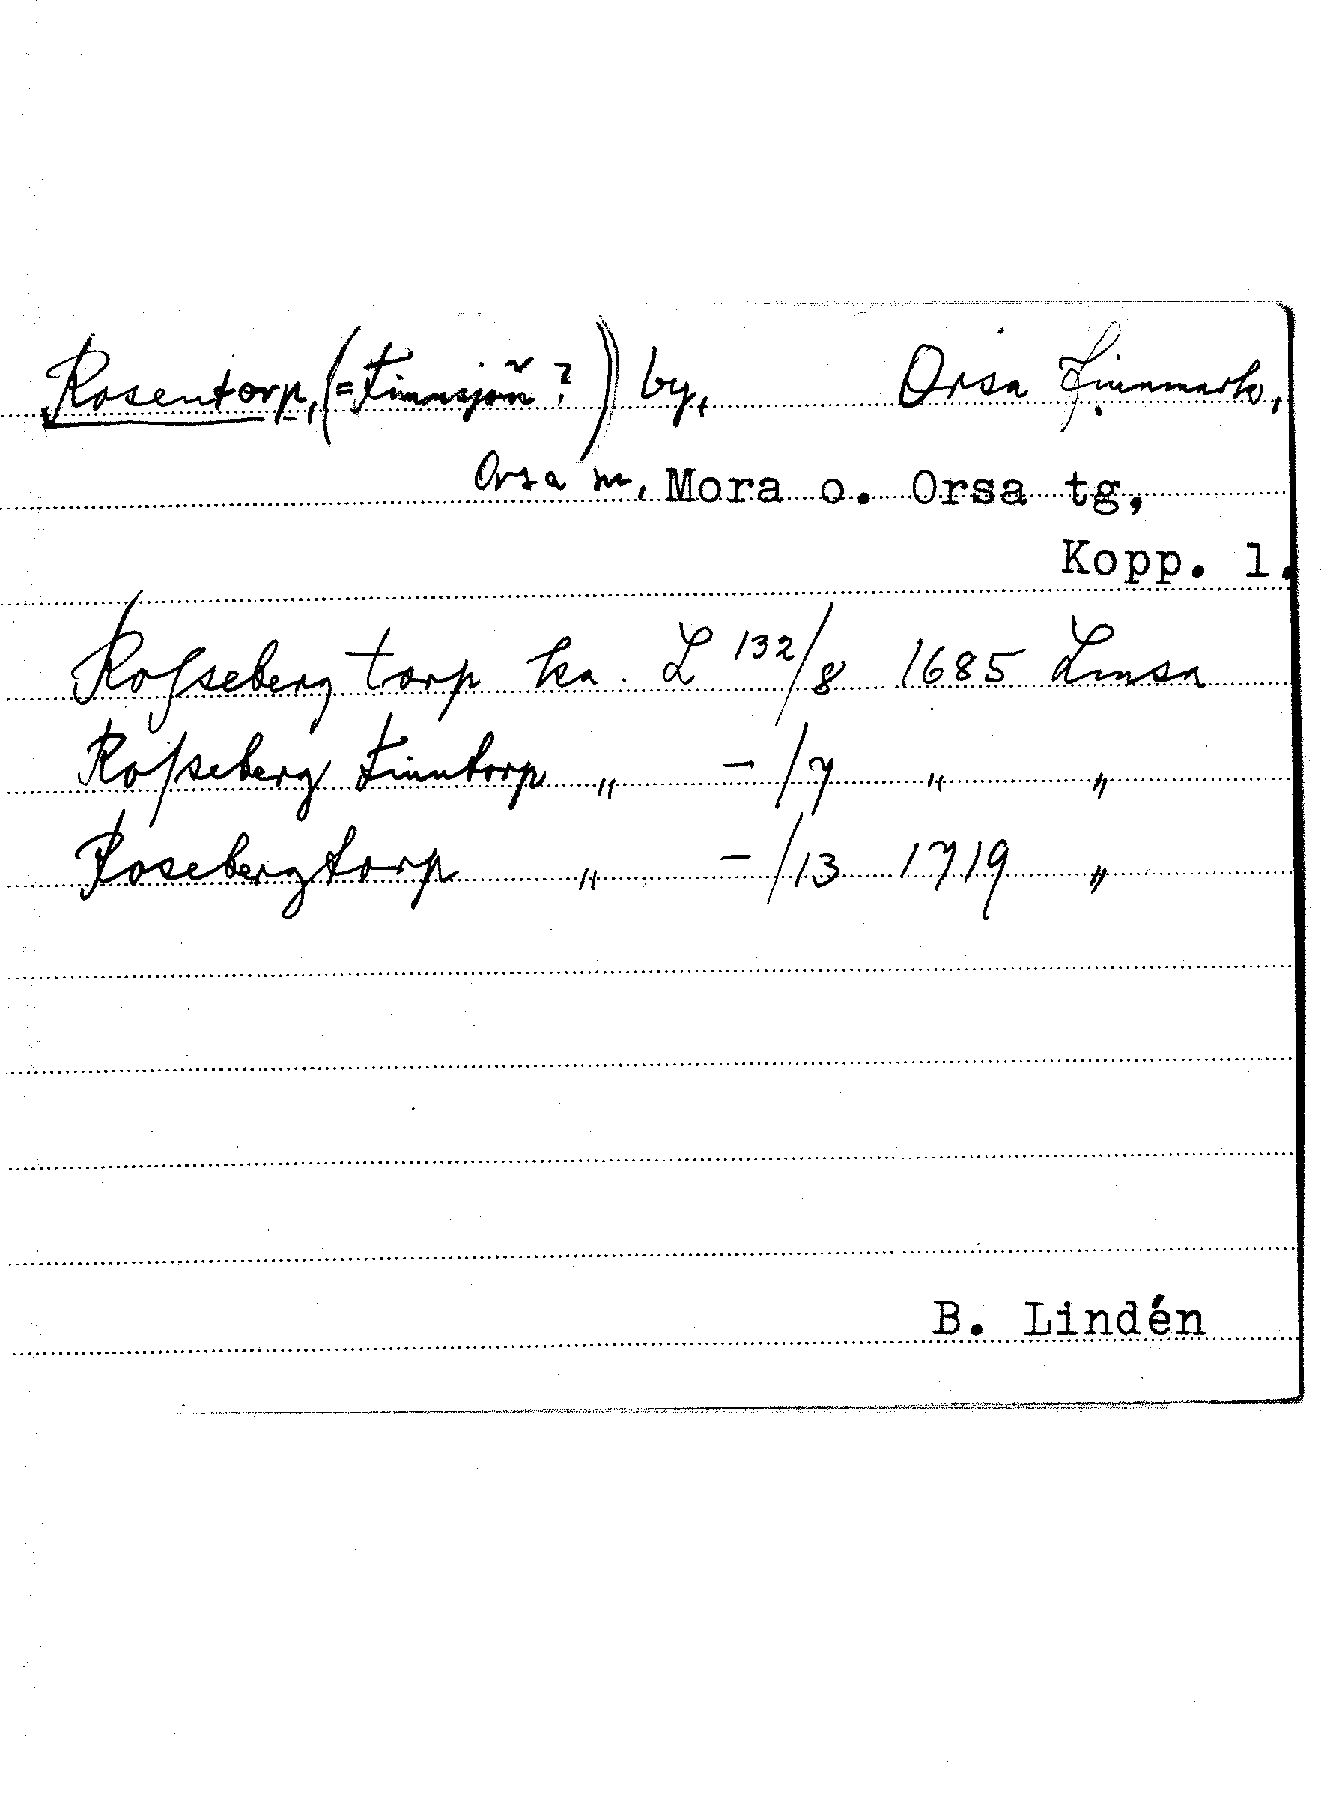 Rosentorp, (=Finnsjön?) by, Orsa Finnmark,
Orsa sn, Mora o. Orsa tg,
Kopp. l.
Rosseberg torp ka. L 132/8 1685 Lmsa
Rosseberg Finntorp " - /7 " "
Rosebergtorp " - /13 1719 "
B. Lindén